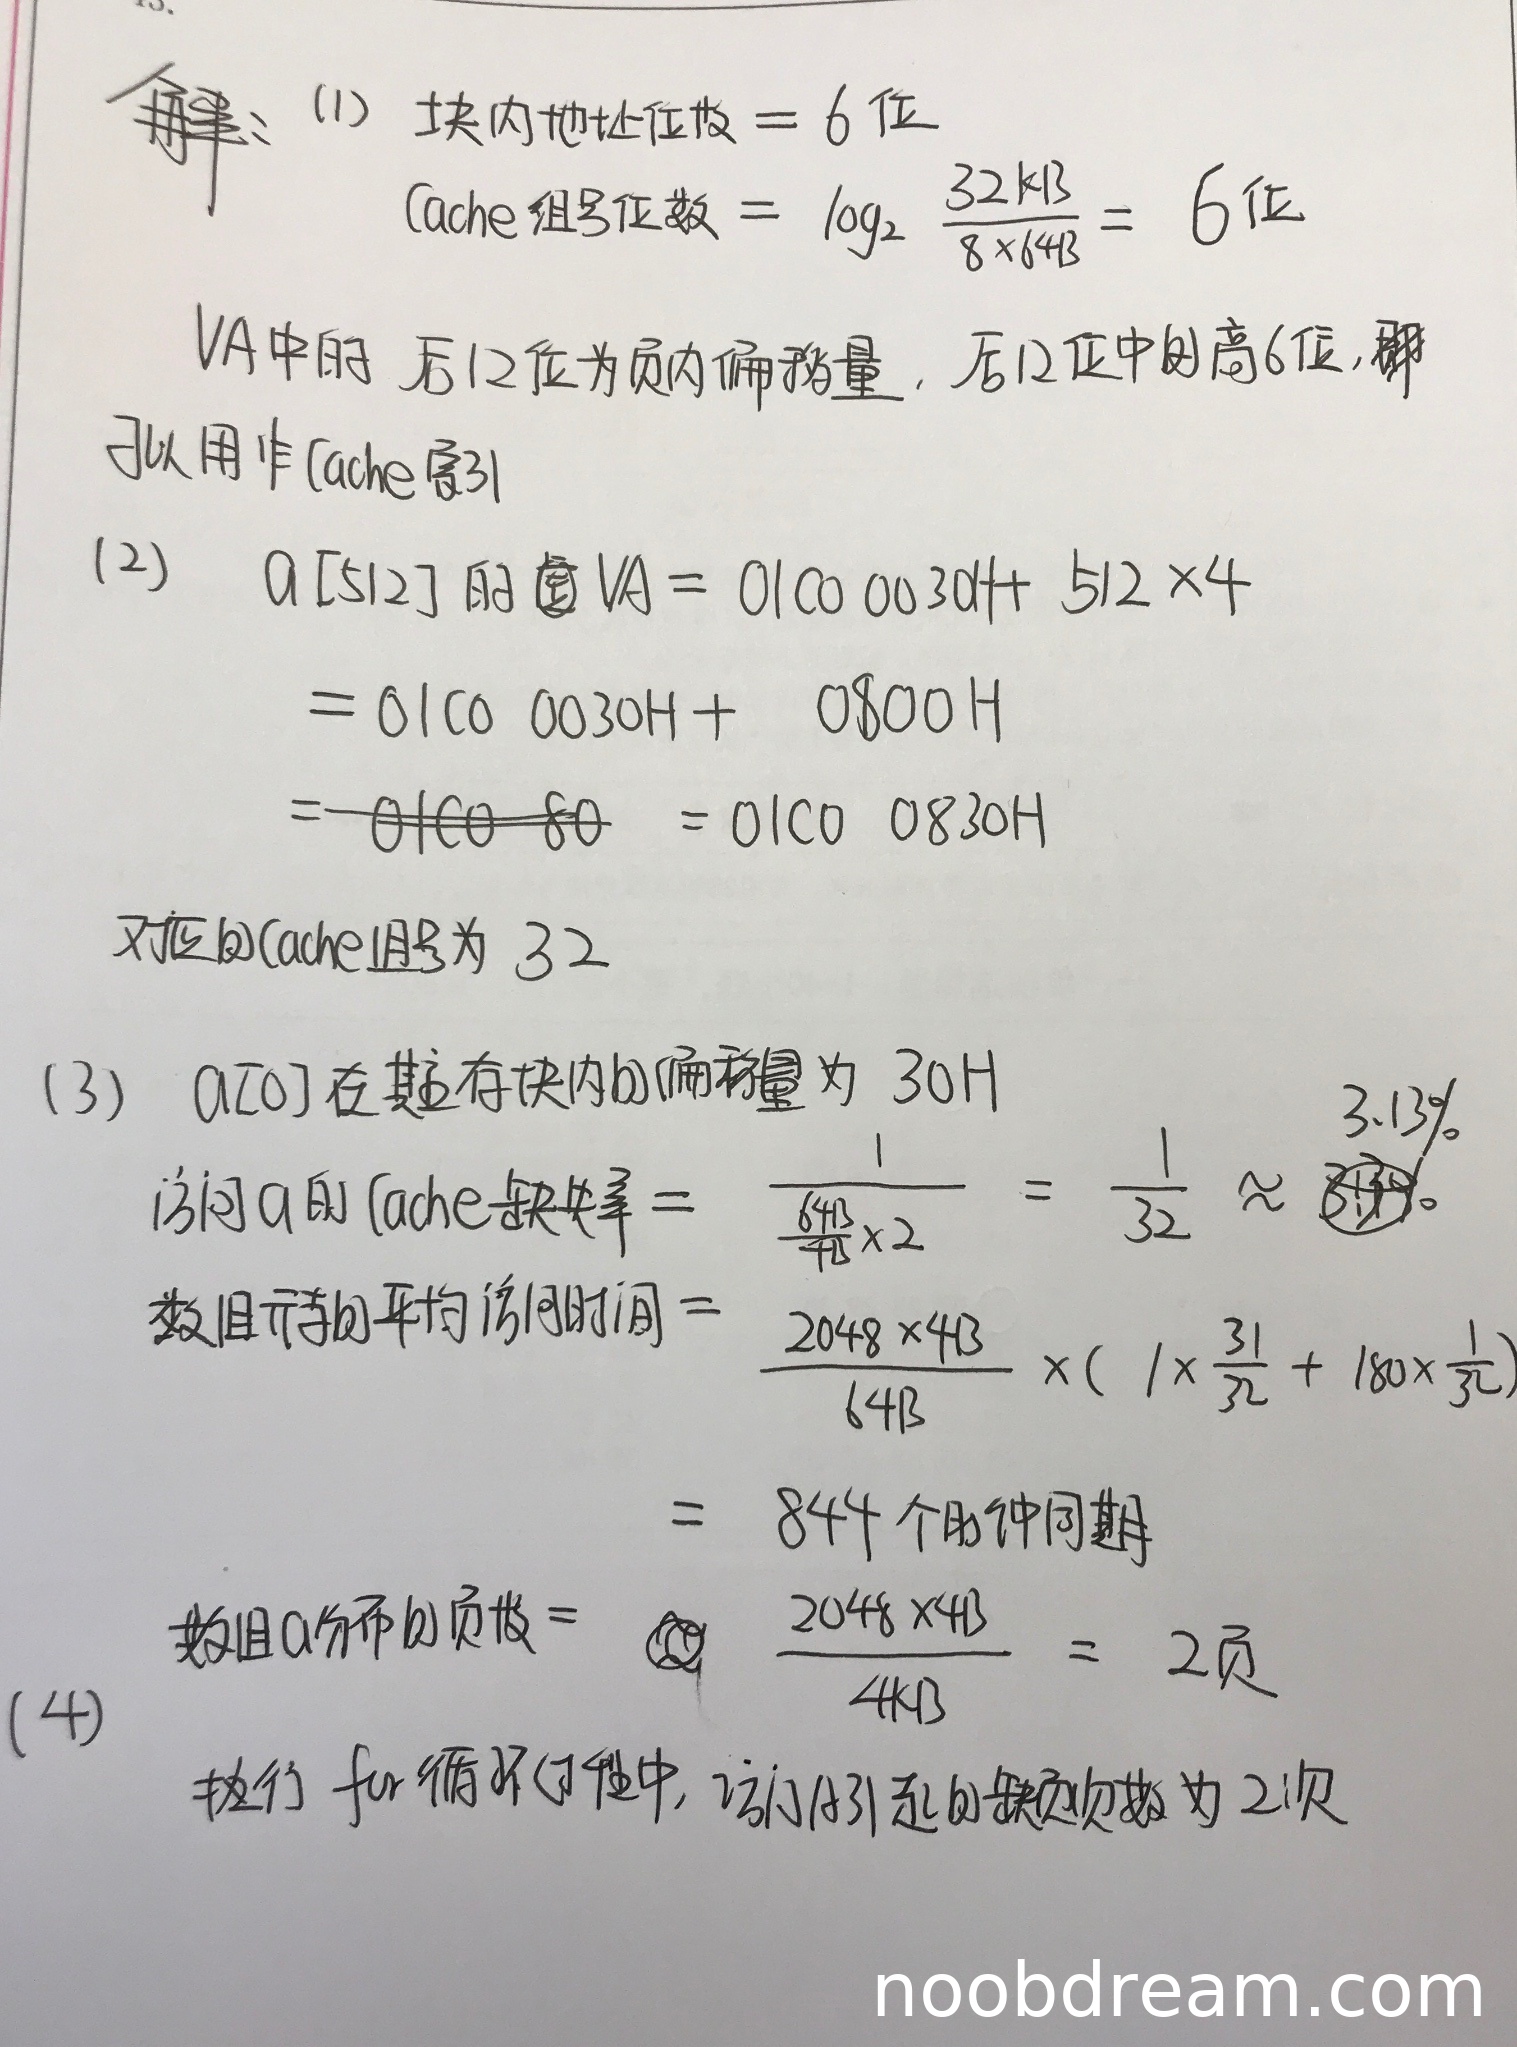 13.
解: (1) 块内地址位数 = 6位
Cache组号位数 = log₂ 32KB/(8×64B) = 6位
VA中的后12位为页内偏移量, 后12位中的高6位,
可以用作Cache索引
(2) a[512]的 VA = 01C0 0030H + 512×4
= 01C0 0030H + 0800H
= 01C0 80 = 01C0 0830H
对应的Cache组号为 32
(3) a[0]在其主存块内的偏移量为 30H
访问a的Cache缺失率 = 1/(64B/4B ×2) = 1/32 ≈ 3.13%
数组元素的平均访问时间 = 2048×4B/64B ×( 1×31/32 + 180×1/32)
= 844个时钟周期
数组a分布的页数 = 2048×4B/4KB = 2页
(4)
执行for循环过程中, 访问A引起的缺页次数为2次
noobdream.com